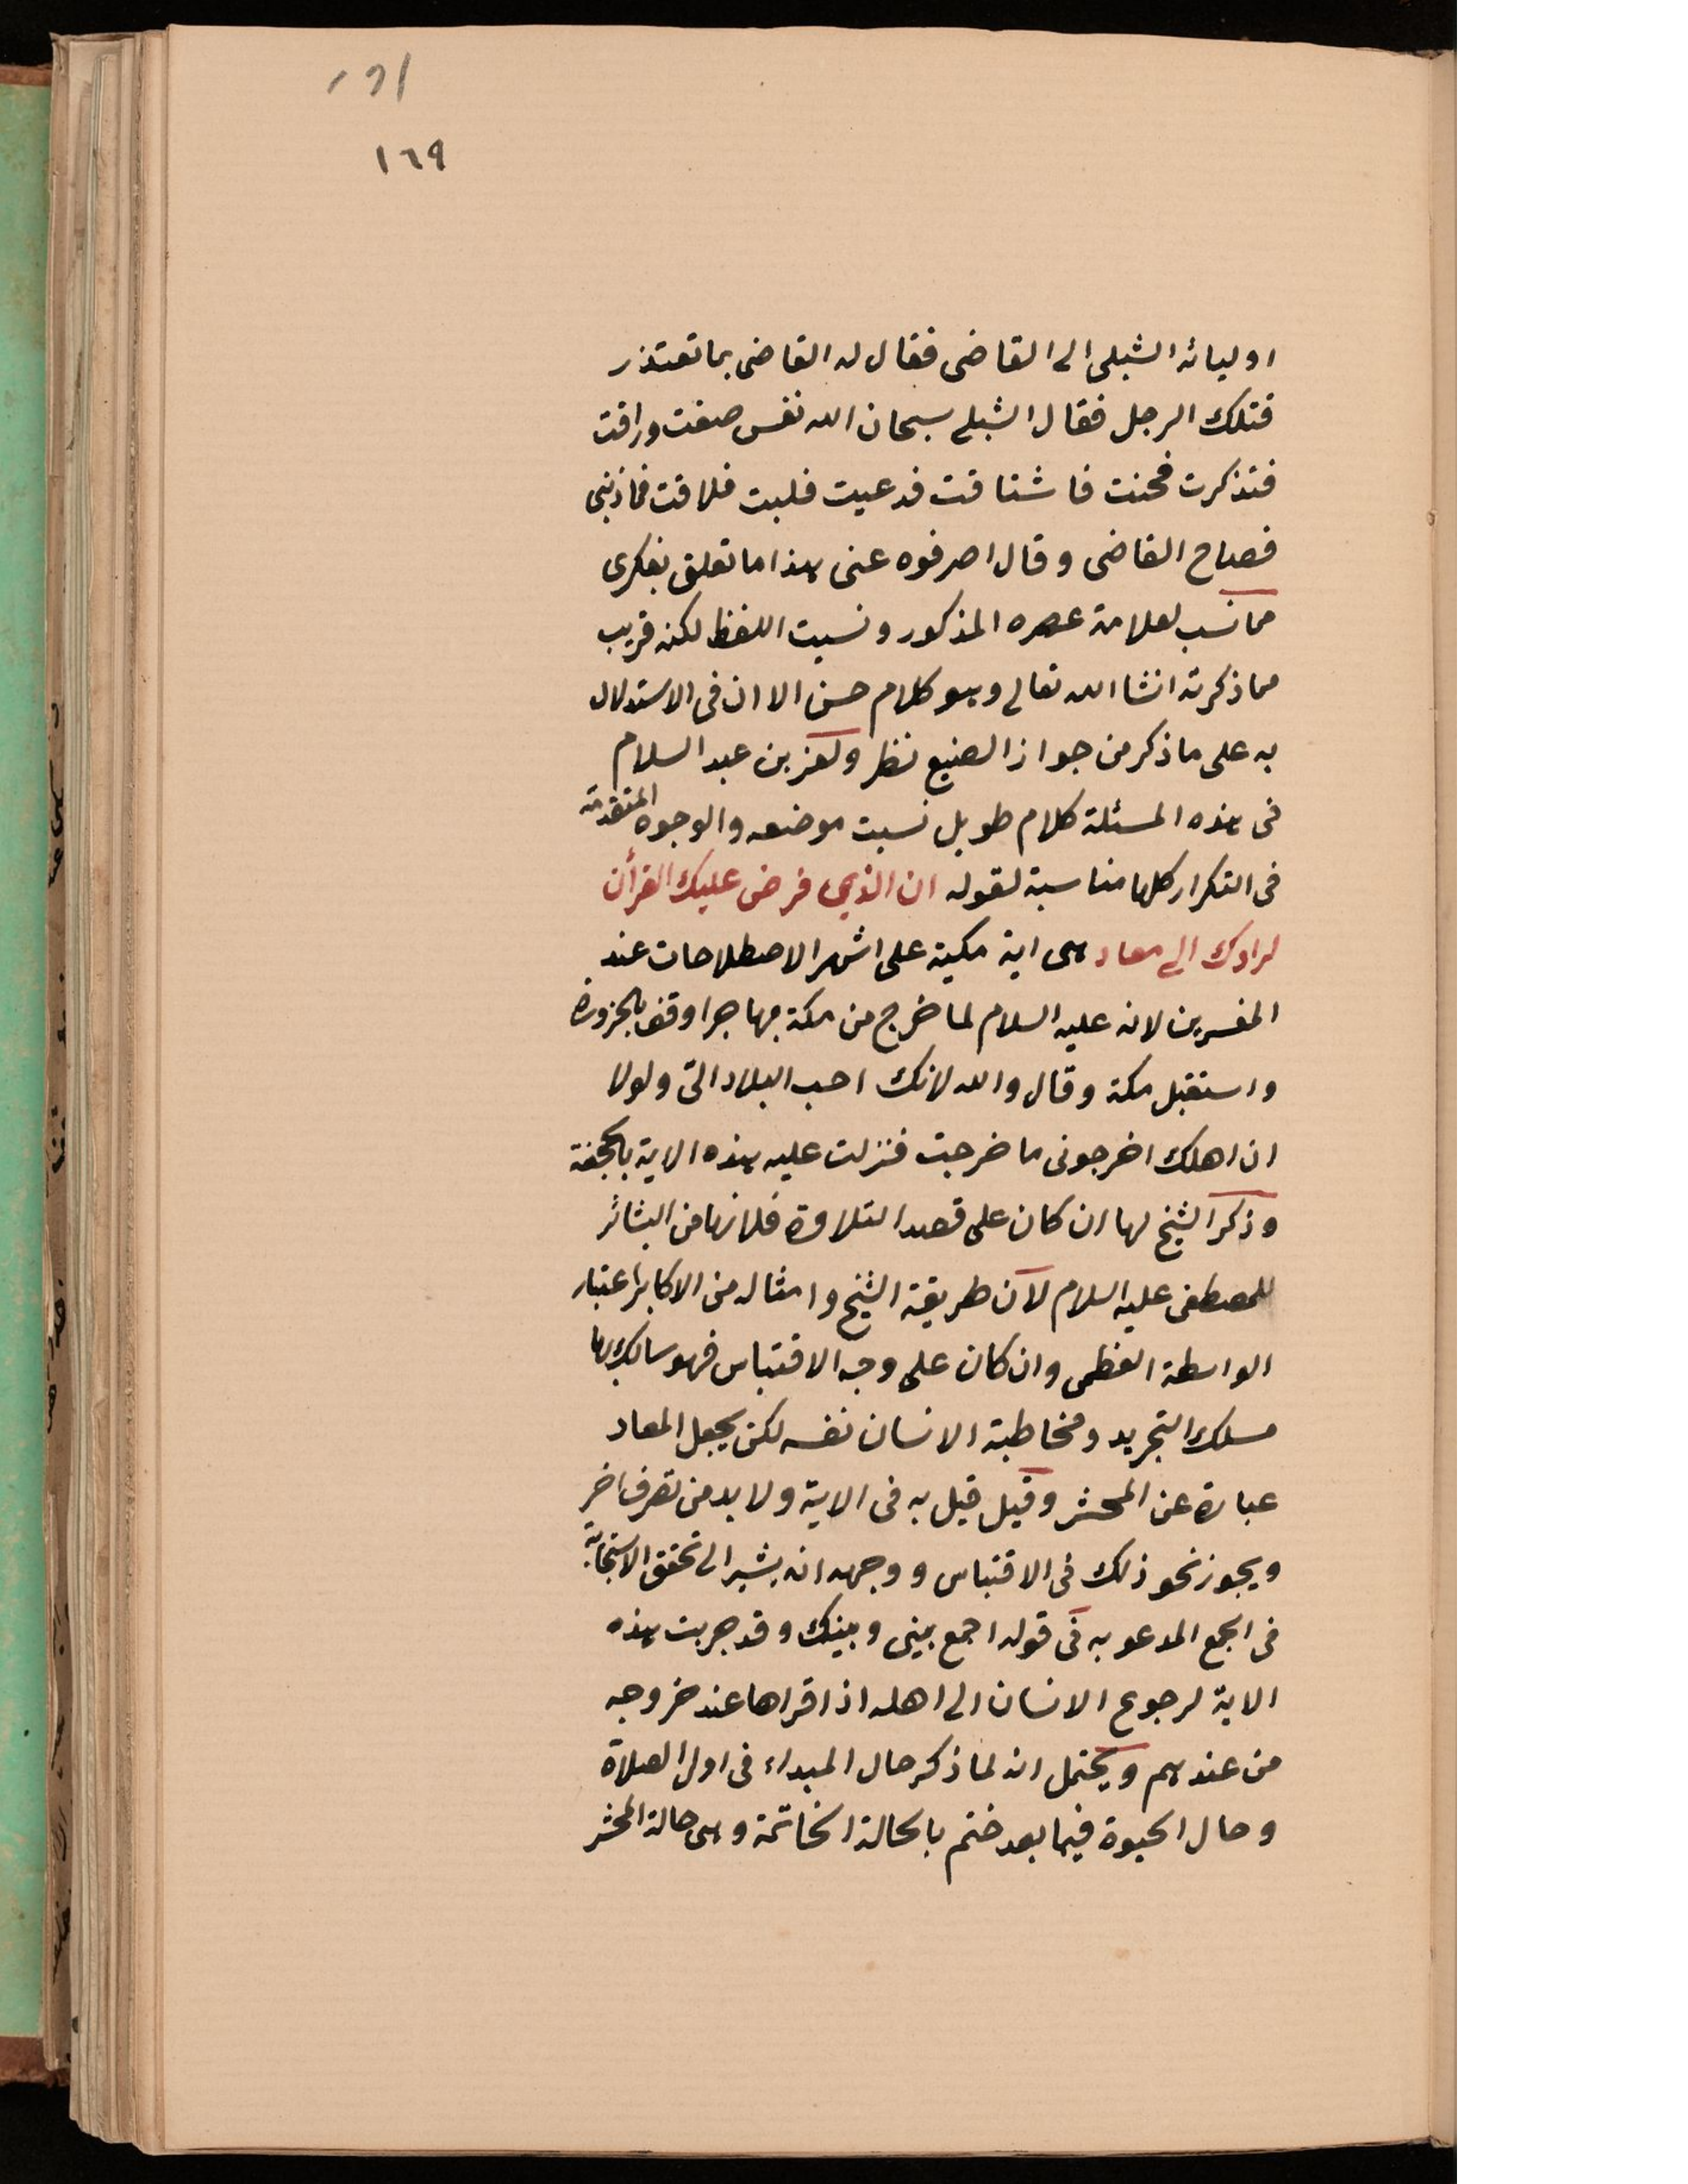 ١٦٩
اوليائه الشبلى الى القاضى فقال له القاضى بما تعتذر
قتلك الرجل فقال الشبلى سبحان الله نفس صفت وراقت
فتذكرت فحنت فاشتاقت فدعيت فلبت فلاقت فما ذنبى
فصاح القاضى وقال اصرفوه عنى هذا ما تعلق بفكرى
مما نسب لعلامة عصره المذكور ونسيت اللفظ لكنه قريب
مما ذكرته انشا الله تعالى وهو كلام حسن الا ان فى الاستدلال
به على ما ذكر من جواز الصنيع نظر ولعز بن عبد السلام
فى هذه المسئلة كلام طويل نسيت موضعه والوجوه المتقدمة
فى التكرار كلها مناسبة لقوله ان الذي فرض عليك القرأن
لرادك الى معاد هى اية مكية على اشهر الاصطلاحات عند
المفسرين لانه عليه السلام لما خرج من مكة مهاجرا وقف بالحزورة
واستقبل مكة وقال والله لانك احب البلاد التى ولولا
ان اهلك اخرجونى ما خرجت فنزلت عليه هذه الاية بالجحفة
وذكر الشيخ لها ان كان على قصد التلاوة فلانها من البشائر
للمصطفى عليه السلام لان طريقة الشيخ وامثاله من الاكابر اعتبار
الواسطة العظمى وان كان على وجه الاقتباس فهو سالك بها
مسلك التجريد ومخاطبة الانسان نفسه لكن يجعل المعاد
عبارة عن المحشر وقيل قيل به فى الاية ولا بد من تصرف اخر
ويجوز نحو ذلك فى الاقتباس ووجهه انه يشير الى تحقق الاستجابة
فى الجمع المدعو به فى قوله اجمع بينى وبينك وقد جربت هذه
الاية لرجوع الانسان الى اهله اذا قراها عند خروجه
من عندهم ويحتمل انه لما ذكر حال المبداء فى اول الصلاة
وحال الحيوة فيما بعد ختم بالحالة الخاتمة وهى حالة المحشر